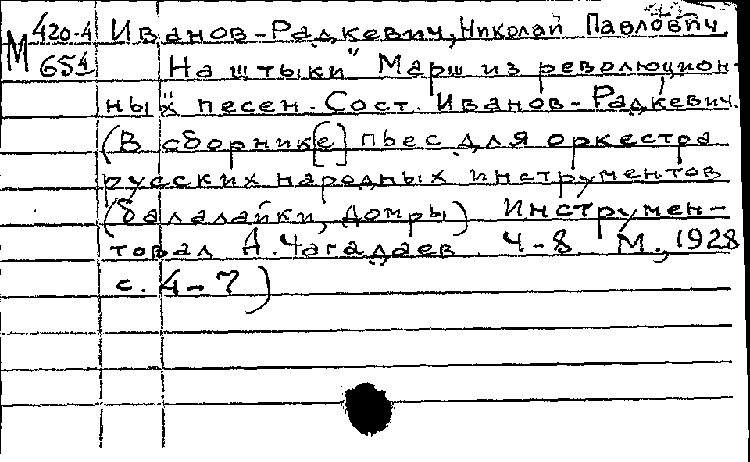 М 420-4 Иванов-Радкевич, Николай Павлович
651 На штыки" Марш из революцион-
ных песен. Сост. Иванов-Радкевич.
(В сборник[е] пьес для оркестра
русских народных инструментов
(балалайки, домры) Инструмен-
товал А. Чагадаев. Ч-8 М., 1928
с. 4-7)